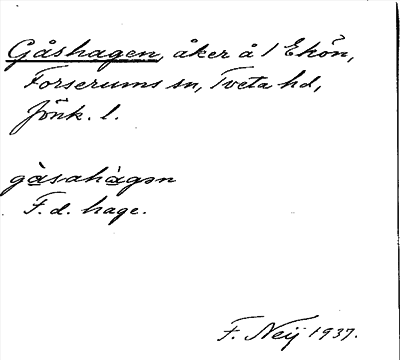 Gåshagen, åker å 1 Ekön,
Forserums sn, Tveta hd,
Jönk. l.
gàsahàgən
F. d. hage.
F. Neij 1937.